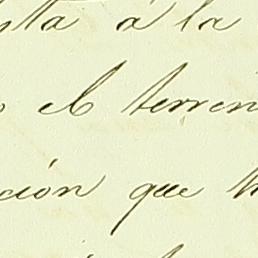 sta á la
el terren
ción que